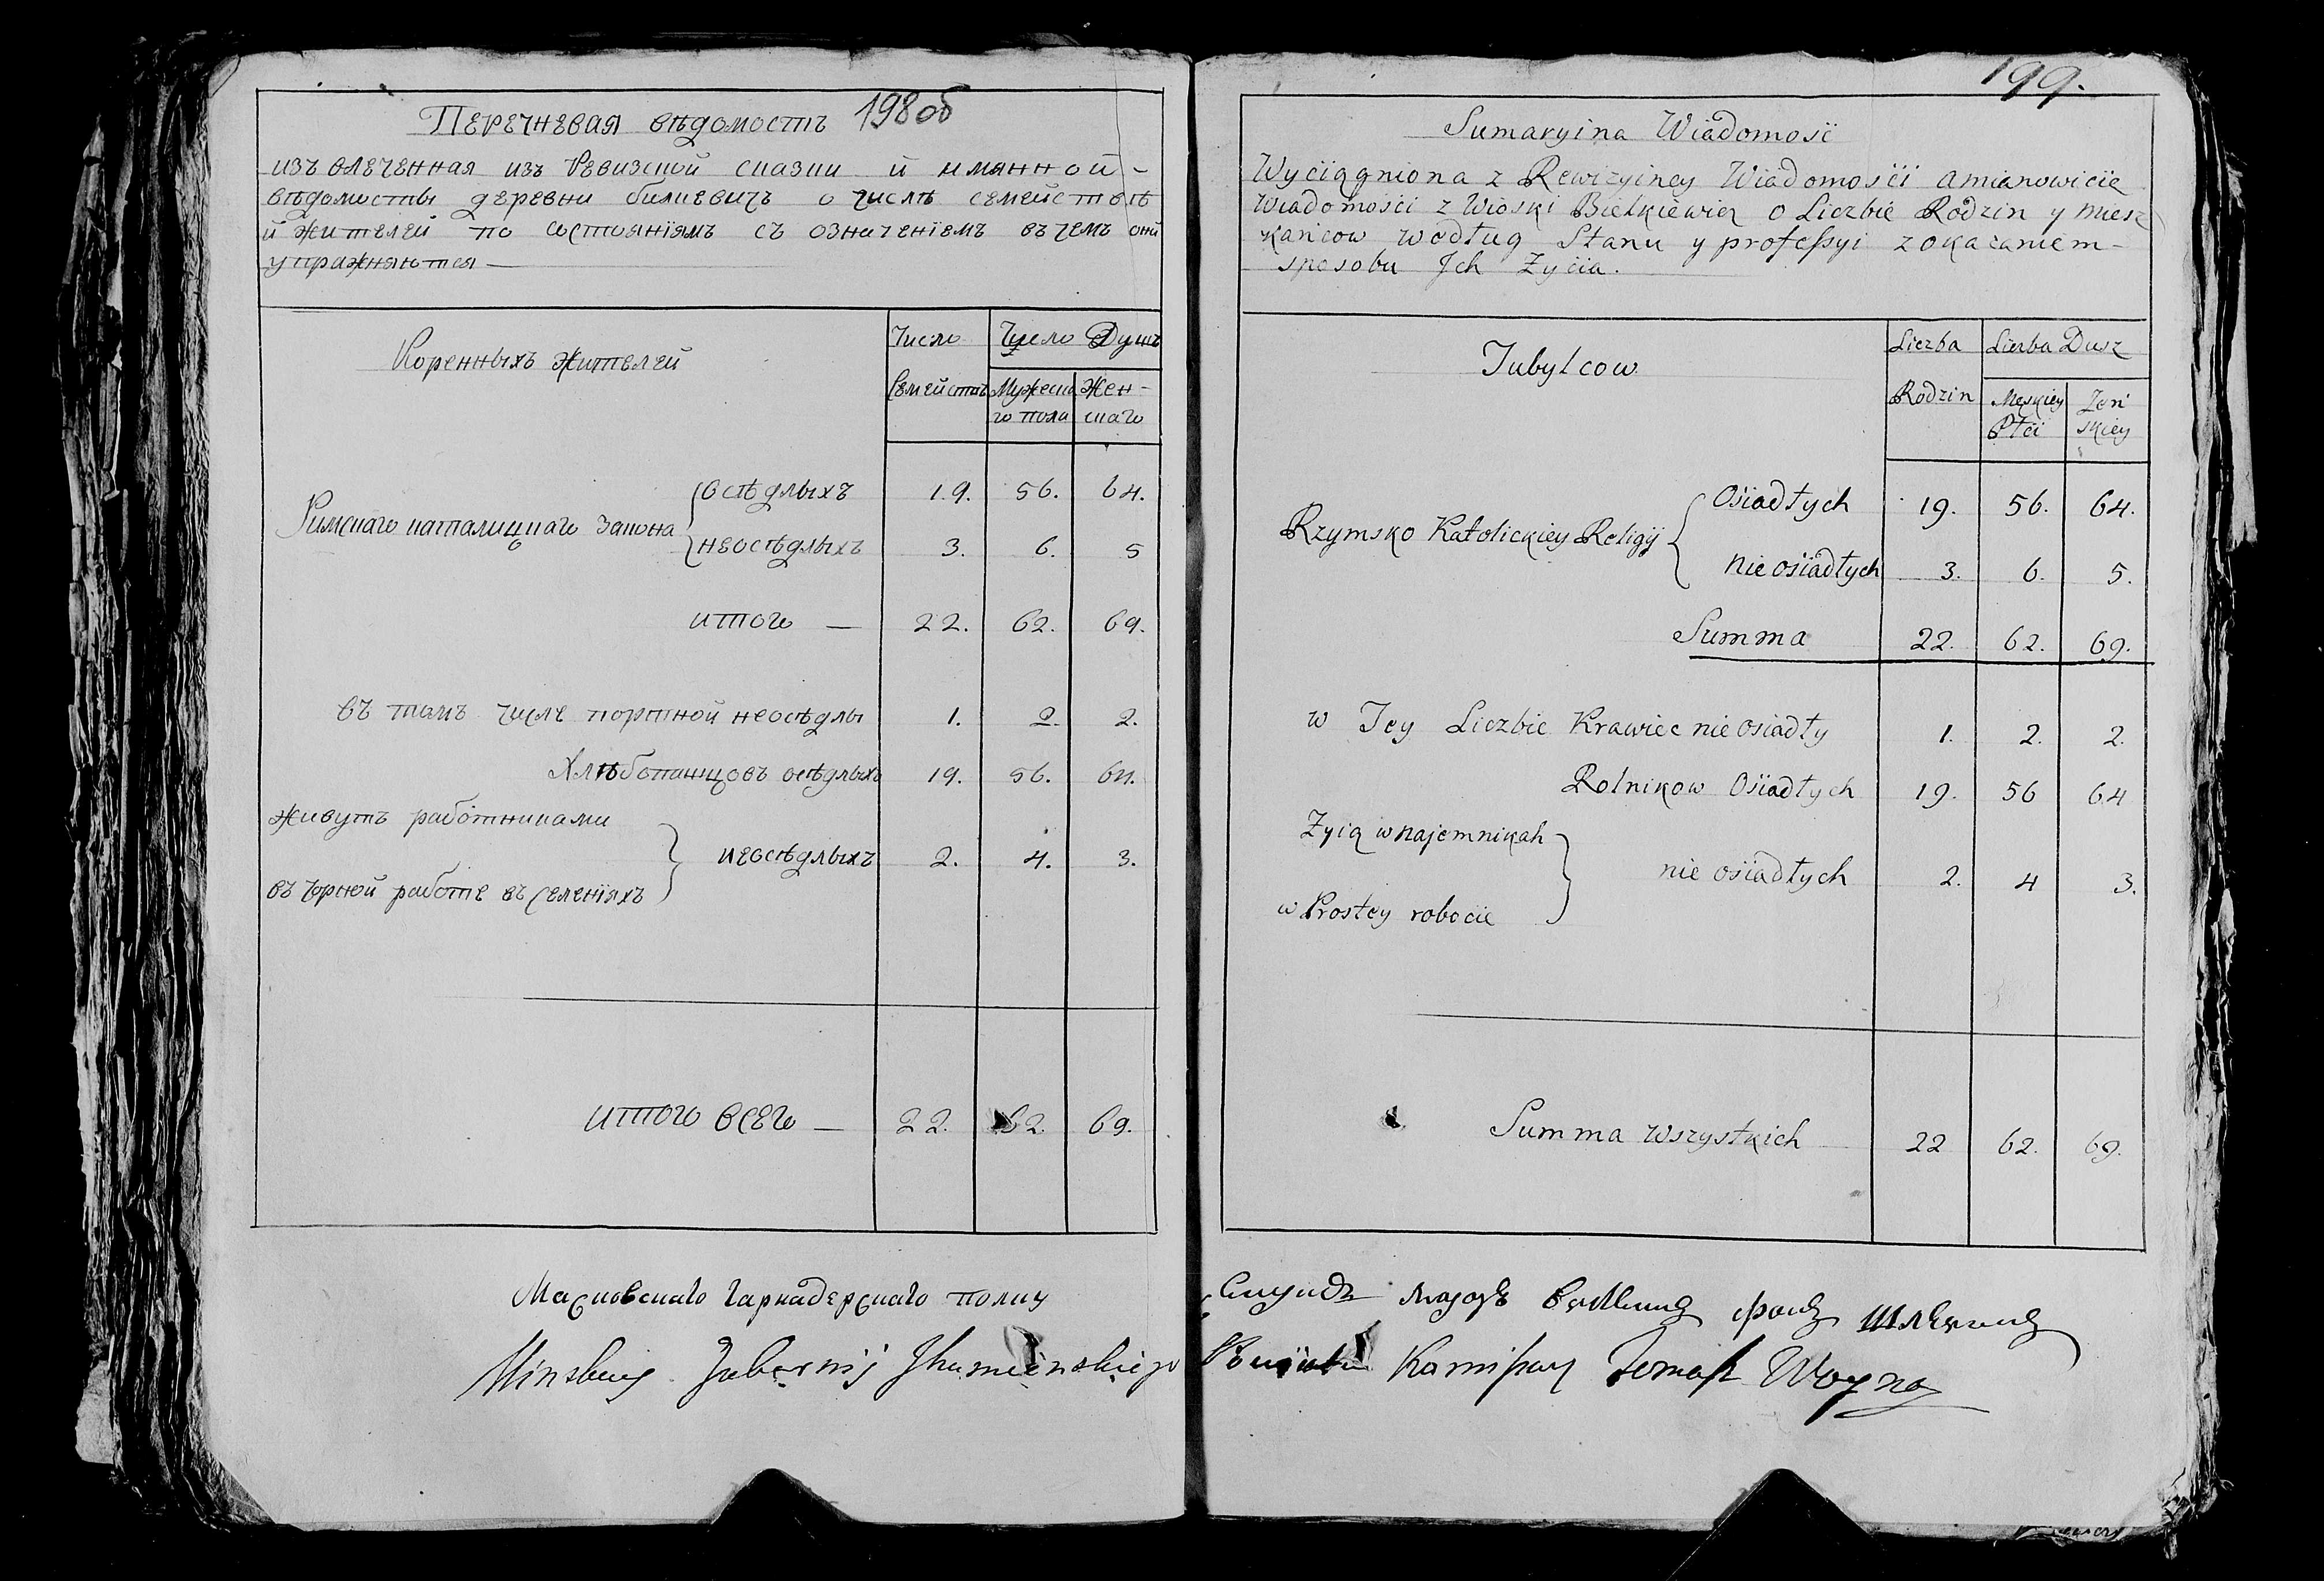 198об
Перечневая вѣдомость
изъ влеченная изъ Ревизской сказки и имянной-
вѣдомости деревни билкевичь о числѣ семействъ
и жителей по состояніямъ съ означеніемъ въ чемъ они
упражняются
Коренныхъ жителей
Число Семействъ
Число Душъ
Мужеска-
го пола
Жен-
скаго
Римскаго католицкаго закона
осѣдлыхъ 19. 56. 64.
неосѣдлыхъ 3. 6. 5
итого — 22. 62. 69.
въ томъ числе портной неосѣдлы 1. 2. 2.
Хлѣбопашцовъ осѣдлыхъ 19. 56. 64.
живутъ работниками
неосѣдлыхъ 2. 4. 3.
въ чорной работе въ селеніяхъ
итого всего — 22. 62. 69.
Московскаго гарнадерскаго полку
Minskiey Gubernij Jhumienskiego
199.
Sumaryina Wiadomosć
Wyciągniona z Rewizyiney Wiadomosći amianowicie
Wiadomosći z Wioski Bielkiewicz o Liczbie Rodzin y miesz
kancow według Stanu y professyi z okazaniem-
sposobu Jch Zycia.
Tubylcow
Liczba
Rodzin
Liczba Dusz
Męskiey
Płci
Zeń
skiey
Rzymsko Katolickiey Religij
Osiadłych 19. 56. 64.
nie osiadłych 3. 6. 5.
Summa 22. 62. 69.
w Tey Liczbie Krawiec nie osiadły 1. 2. 2.
Rolnikow Osiadłych 19. 56 64
Zyią w najemnikah
nie osiadłych 2. 4 3.
w Prostey robocie
Summa wszystkich 22 62. 69.
Powiatu Komissarz Tomasz Woyna